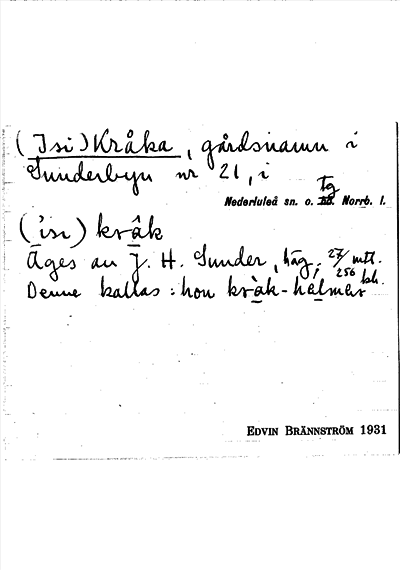 (Isi) Kråka, gårdsnamn i
Sunderbyn nr 21, i
Nederluleå sn. o. tg Norrb. l.
('isi) kråk
Äges av J. H. Sunder, häg; 27/256 mtl.
Denne kallas: hon kråk-halmer kh.
EDVIN BRÄNNSTRÖM 1931